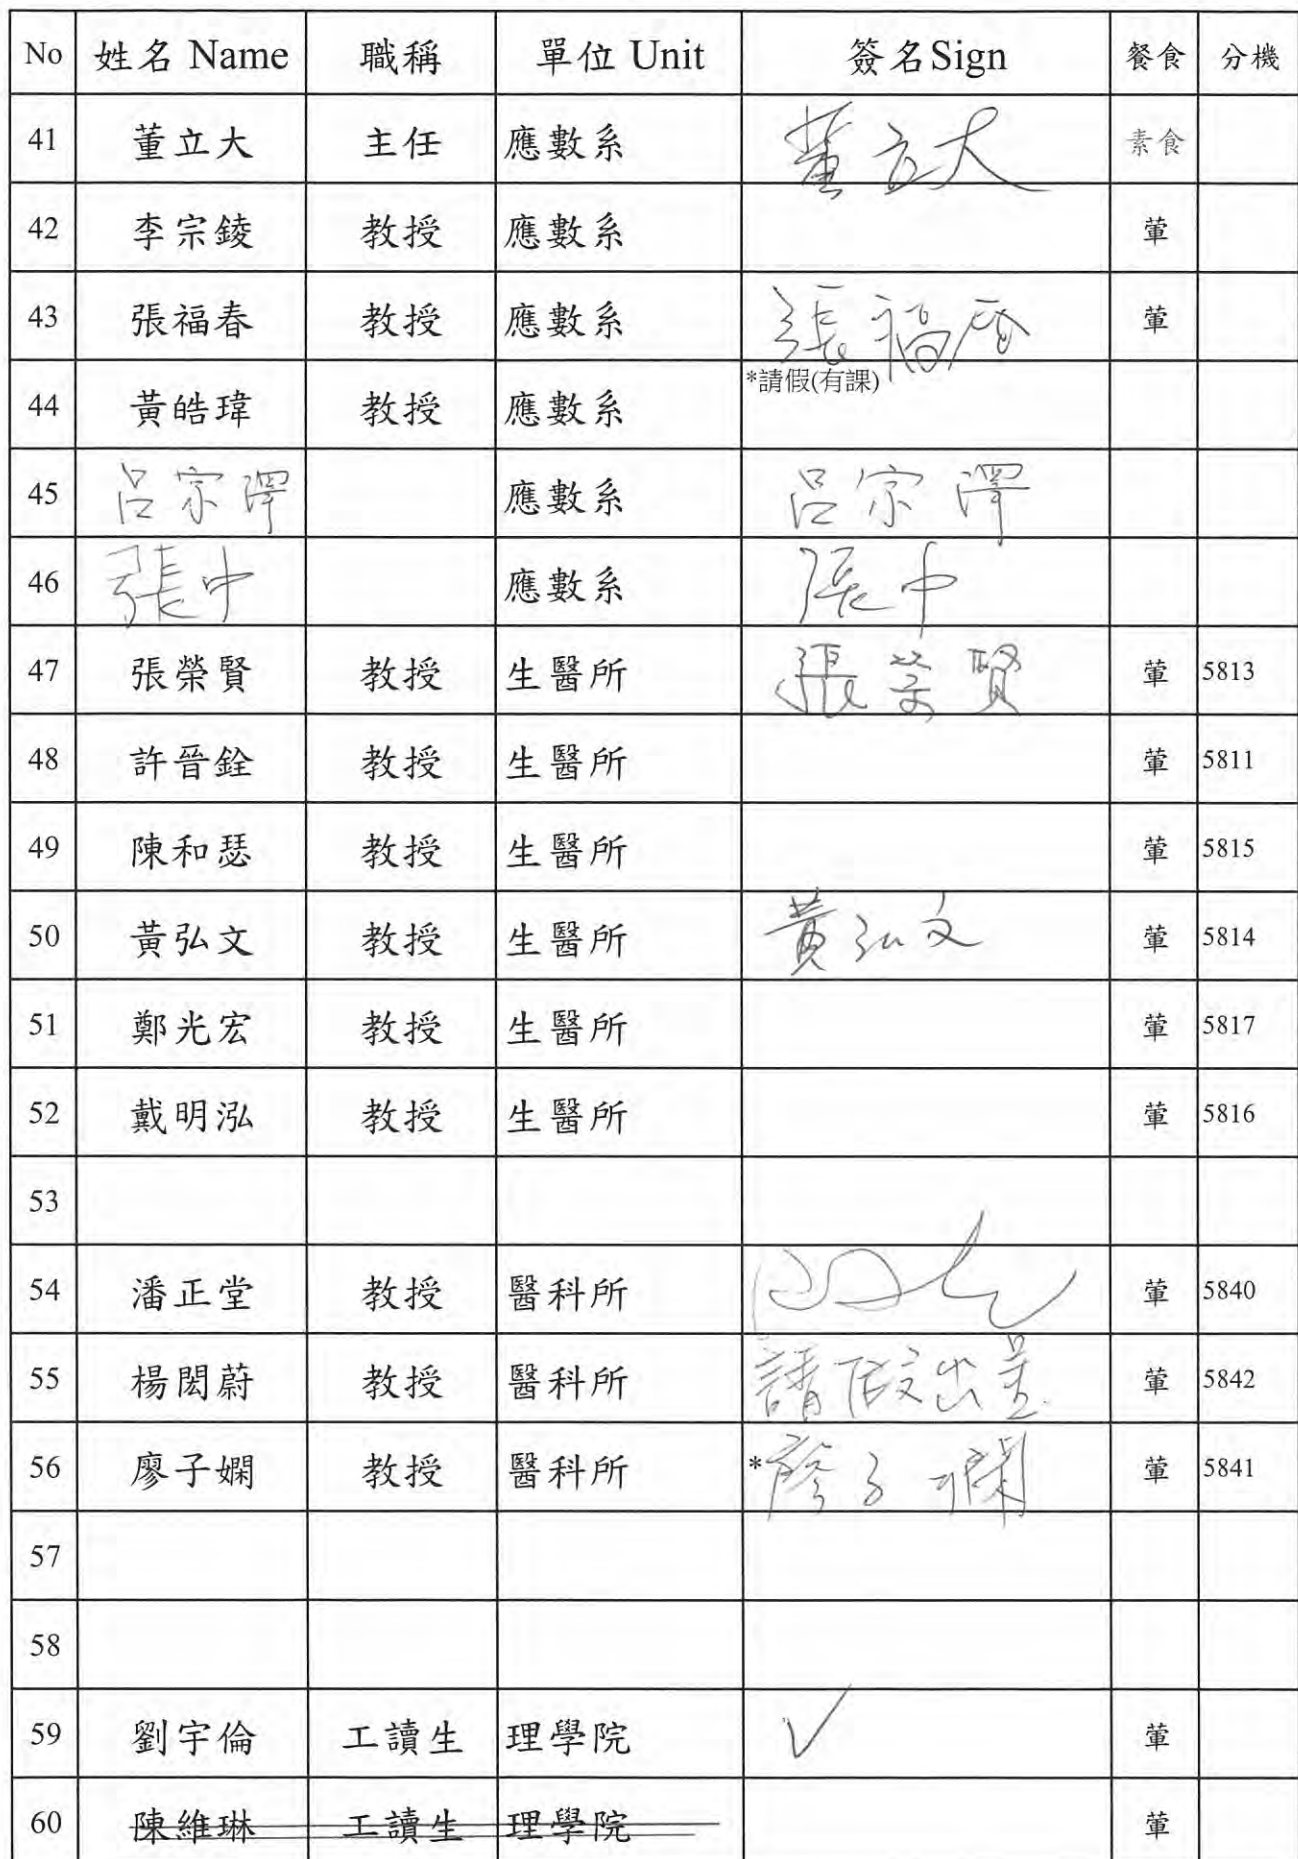 No 姓名 Name 職稱 單位 Unit 簽名Sign 餐食 分機
41 董立大 主任 應數系 董立大 素食
42 李宗錂 教授 應數系 葷
43 張福春 教授 應數系 張福春 葷
44 黃皓瑋 教授 應數系 *請假(有課)
45 呂宗澤 應數系 呂宗澤
46 張中 應數系 張中
47 張榮賢 教授 生醫所 張榮賢 葷 5813
48 許晉銓 教授 生醫所 葷 5811
49 陳和瑟 教授 生醫所 葷 5815
50 黃弘文 教授 生醫所 黃弘文 葷 5814
51 鄭光宏 教授 生醫所 葷 5817
52 戴明泓 教授 生醫所 葷 5816
53
54 潘正堂 教授 醫科所 葷 5840
55 楊閎蔚 教授 醫科所 請假出差 葷 5842
56 廖子嫻 教授 醫科所 *廖子嫻 葷 5841
57
58
59 劉宇倫 工讀生 理學院 ✓ 葷
60 陳維琳 工讀生 理學院 葷